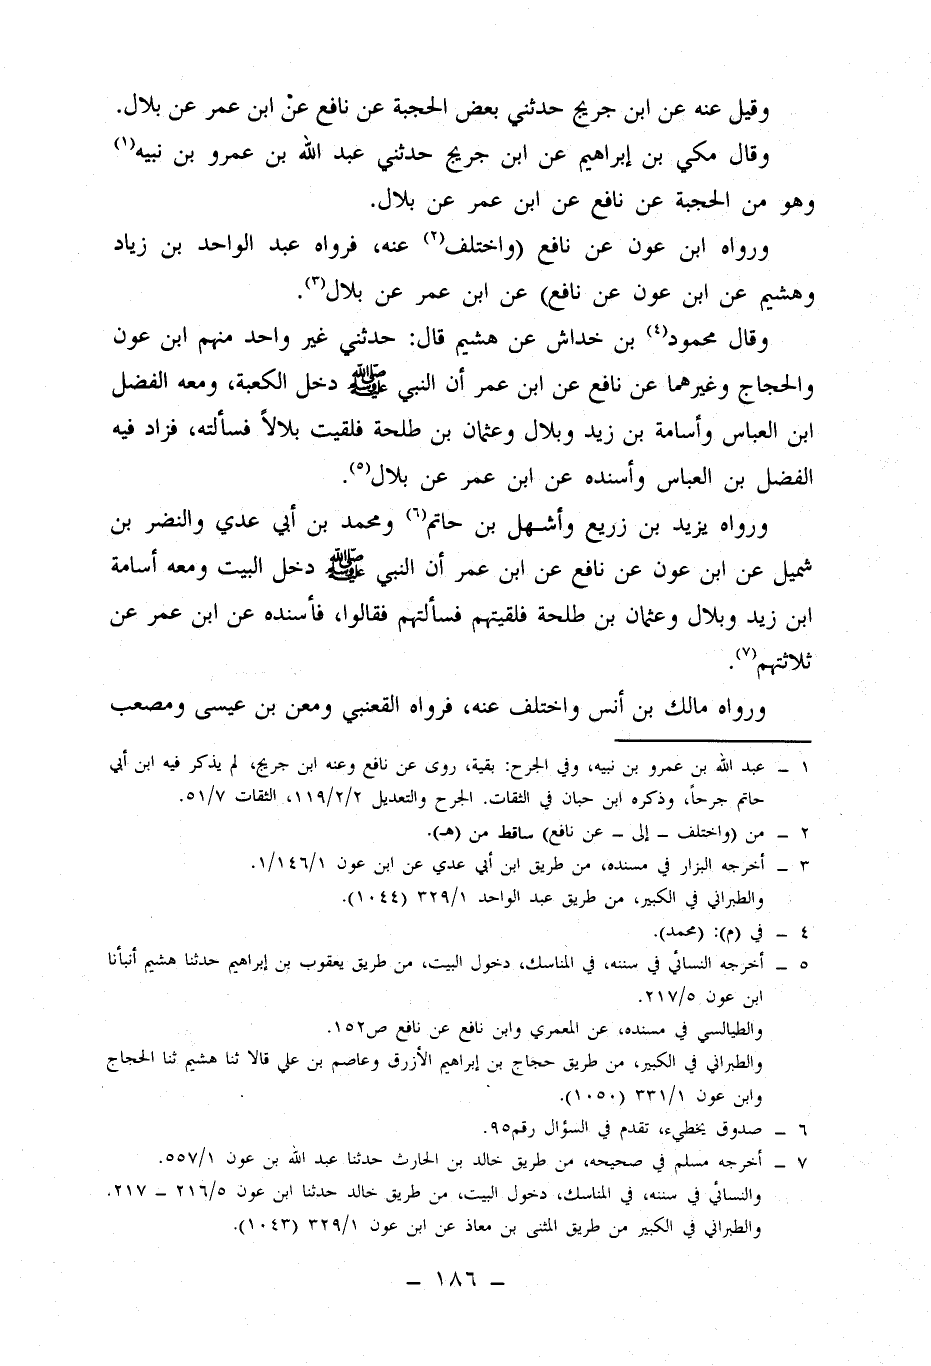 وقيل عنه عن ابن جريج حدثني بعض الحجبة عن نافع عنْ ابن عمر عن بلال.
وقال مكي بن إبراهيم عن ابن جريج حدثني عبد الله بن عمرو بن نبيه(١)
وهو من الحجبة عن نافع عن ابن عمر عن بلال.
ورواه ابن عون عن نافع (واختلف(٢) عنه، فرواه عبد الواحد بن زياد
وهشيم عن ابن عون عن نافع) عن ابن عمر عن بلال(٣).
وقال محمود(٤) بن خداش عن هشيم قال: حدثني غير واحد منهم ابن عون
والحجاج وغيرهما عن نافع عن ابن عمر أن النبي ﷺ دخل الكعبة، ومعه الفضل
ابن العباس وأسامة بن زيد وبلال وعثمان بن طلحة فلقيت بلالاً فسألته، فزاد فيه
الفضل بن العباس وأسنده عن ابن عمر عن بلال(٥).
ورواه يزيد بن زريع وأشهل بن حاتم(٦) ومحمد بن أبي عدي والنضر بن
شميل عن ابن عون عن نافع عن ابن عمر أن النبي ﷺ دخل البيت ومعه أسامة
ابن زيد وبلال وعثمان بن طلحة فلقيتهم فسألتهم فقالوا، فأسنده عن ابن عمر عن
ثلاثتهم(٧).
ورواه مالك بن أنس واختلف عنه، فرواه القعنبي ومعن بن عيسى ومصعب
١ ـ عبد الله بن عمرو بن نبيه، وفي الجرح: بقية، روى عن نافع وعنه ابن جريج، لم يذكر فيه ابن أبي
حاتم جرحاً، وذكره ابن حبان في الثقات. الجرح والتعديل ١١٩/٢/٢، الثقات ٥١/٧.
٢ ـ من (واختلف ـ إلى ـ عن نافع) ساقط من (هـ).
٣ ـ أخرجه البزار في مسنده، من طريق ابن أبي عدي عن ابن عون ١/١٤٦/١.
والطبراني في الكبير، من طريق عبد الواحد ٣٢٩/١ (١٠٤٤).
٤ ـ في (م): (محمد).
٥ ـ أخرجه النسائي في سننه، في المناسك، دخول البيت، من طريق يعقوب بن إبراهيم حدثنا هشيم أنبأنا
ابن عون ٢١٧/٥.
والطيالسي في مسنده، عن المعمري وابن نافع عن نافع ص١٥٢.
والطبراني في الكبير، من طريق حجاج بن إبراهيم الأزرق وعاصم بن علي قالا ثنا هشيم ثنا الحجاج
وابن عون ٣٣١/١ (١٠٥٠).
٦ ـ صدوق يخطيء، تقدم في السؤال رقم٩٥.
٧ ـ أخرجه مسلم في صحيحه، من طريق خالد بن الحارث حدثنا عبد الله بن عون ٥٥٧/١.
والنسائي في سننه، في المناسك، دخول البيت، من طريق خالد حدثنا ابن عون ٢١٦/٥ ـ ٢١٧.
والطبراني في الكبير من طريق المثنى بن معاذ عن ابن عون ٣٢٩/١ (١٠٤٣).
ـ ١٨٦ ـ